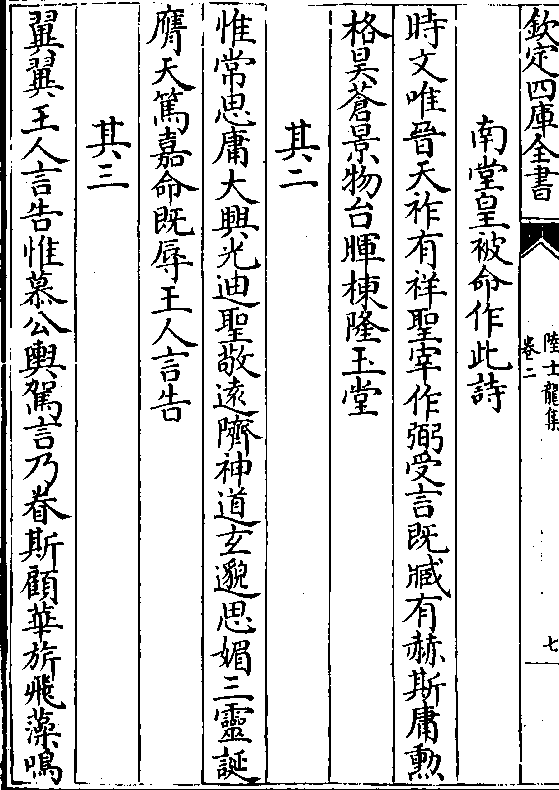 欽定四庫全書
陸士龍集
卷二
七
南堂皇被命作此詩
時文唯晉天祚有祥聖宰作弼受言既臧有赫斯庸勲
格昊蒼景物台暉棟隆玉堂
其二
惟常思庸大興光迪聖敬遠隮神道玄邈思媚三靈誕
膺天篤嘉命既辱王人言告
其三
翼翼王人言告惟慕公輿駕言乃眷斯顧華旂飛藻鳴